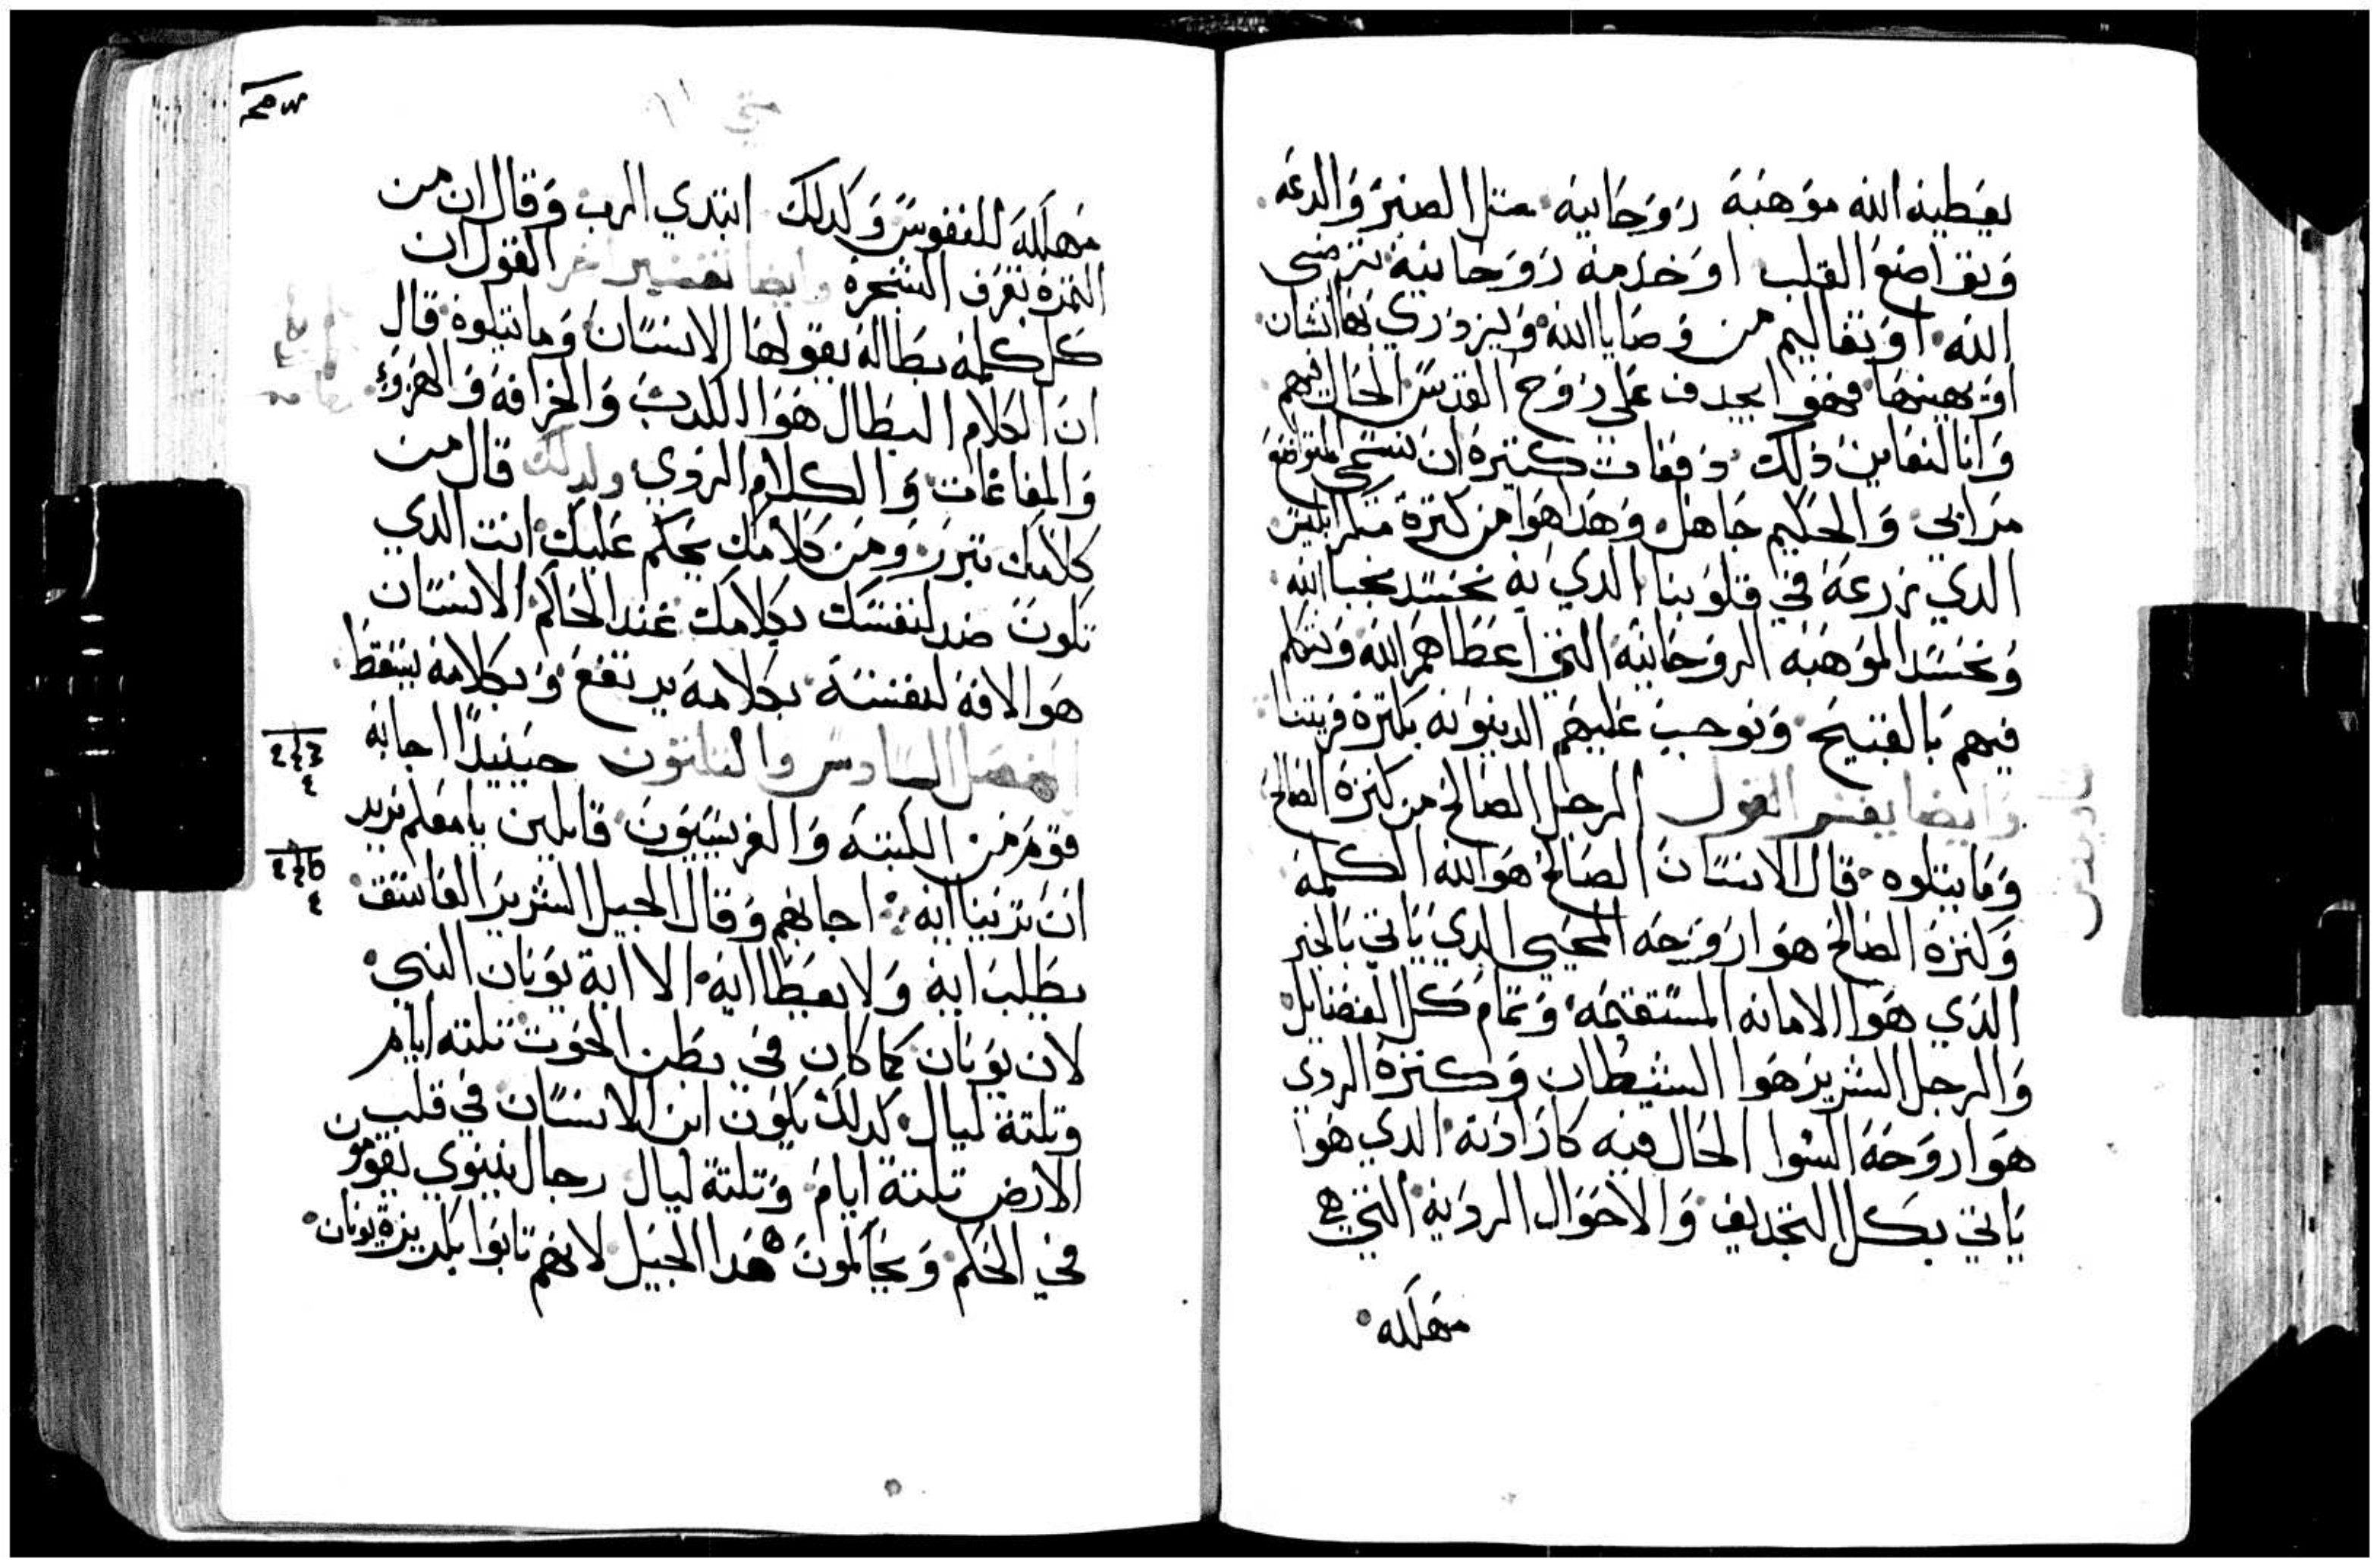 يعطيه الله موهبة روحانيه مثل الصبر والدعه
وتواضع القلب او خدمه روحانيه ترضي
الله او تعاليم من وصايا الله ويزدري بها انسان
او يهينها فهوا يجدف علي روح القدس الحال فيهم
وانا لنعاين ذلك دفعات كتيرة ان نسمي المتواضع
مرابي والحكيم جاهل وهذا هوا من كترة مكر ابليس
الدي زرعه في قلوبنا الدي به نحسد محبا الله
ونحسد الموهبه الروحانيه التي اعطاهم الله ونتكلم
فيهم بالقبيح ونوجب عليهم الدينونه بكترة فريتنا
وايضا يفسر القول الرجل الصالح من كنزه الصالح
وما يتلوه قال الانسان الصالح هو الله الكلمه
وكنزه الصالح هوا روحه المحيي الدي ياتي بالخير
الدي هوا الامانه المستقيمه وتمام كل الفضايل
والرجل الشرير هوا الشيطان وكنزه الردي
هوا روحه السوا الحال فيه كارادته الدي هوا
ياتي بكل التجديف والاحوال الرديه التي هي
مهلكه
متي
مهلكه للنفوس وكدلك ابتدي الرب وقال ان من
التمرة تعرف الشجره وايضا تفسير اخر القول ان
كل كلمة بطاله يقولها الانسان وما تتلوه قال
ان الكلام البطال هوا الكدب والخرافة والهزوء
والمفاغات والكلام الردي ولدلك قال من
كلامك تتبرر ومن كلامك يحكم عليك انت الدي
تكون ضد لنفسك بكلامك عند الحاكم الانسان
هو الافة لنفسه بكلامه يرتفع وبكلامه يسقط
الفصل السادس والتلتون حينيدا اجابه
قوم من الكتبه والفريسيون قايلين يا معلم نريد
ان ترينا ايه اجابهم وقال الجيل الشرير الفاسق
يطلب ايه ولا يعطا ايه الا اية يونان النبي
لان يونان كما كان في بطن الحوت تلته ايام
وتلتة ليال كدلك يكون ابن الانسان في قلب
الارض تلتة ايام وتلتة ليال رجال نينوي يقومون
في الحكم ويحاكمون هدا الجيل لانهم تابوا بكريزة يونان